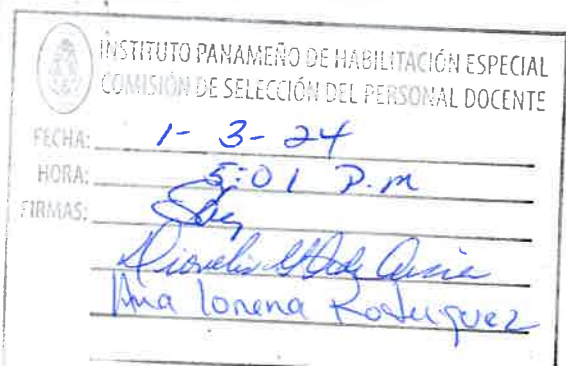 INSTITUTO PANAMEÑO DE HABILITACIÓN ESPECIAL
COMISIÓN DE SELECCIÓN DEL PERSONAL DOCENTE
FECHA: 1-3-24
HORA: 5:01 P.m
FIRMAS:
Ana Lorena Rodriguez